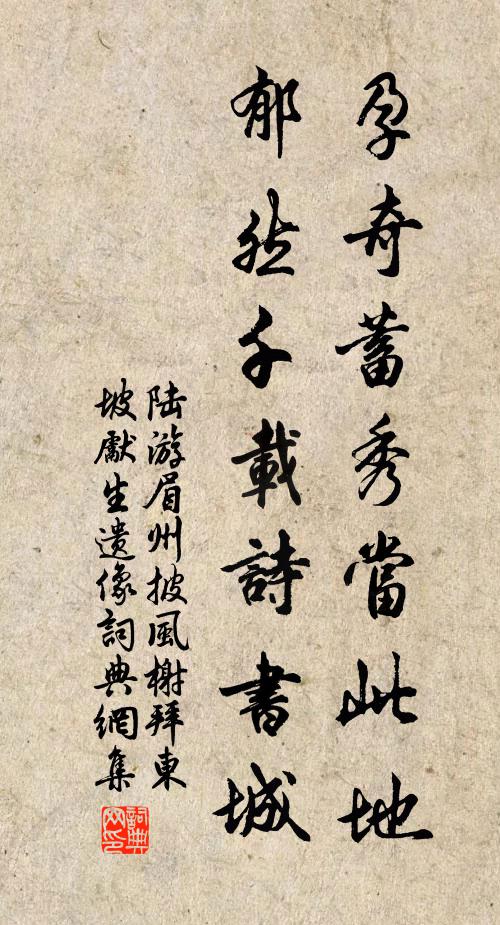 孕奇蓄秀當此地
郁然千載詩書城
陆游眉州披風榭拜東
坡獻生遺像詞典網集
詞典
网印